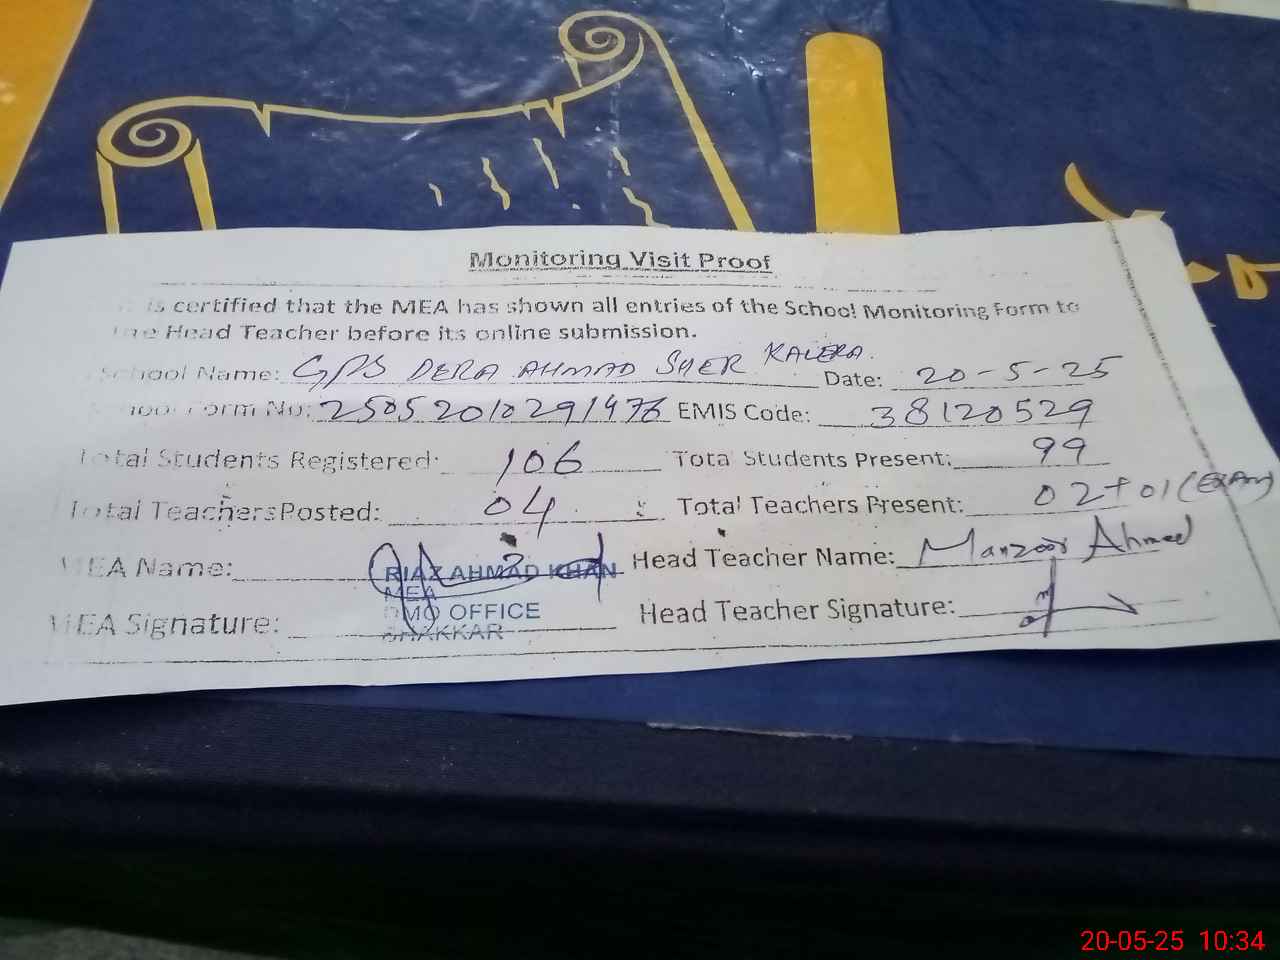 Monitoring Visit Proof
is certified that the MEA has shown all entries of the School Monitoring Form to
the Head Teacher before its online submission.
School Name: GPS DERA AHMAD SHER KALERA. Date: 20-5-25
School Form No: 2505201029147 EMIS Code: 38120529
Total Students Registered: 106 Total Students Present: 99
Total Teachers Posted: 04 Total Teachers Present: 02+01 (EXAM)
MEA Name: RIAZ AHMAD KHAN Head Teacher Name: Manzoor Ahmed
MEA
DMO OFFICE
MEA Signature: BHAKKAR Head Teacher Signature:
20-05-25 10:34